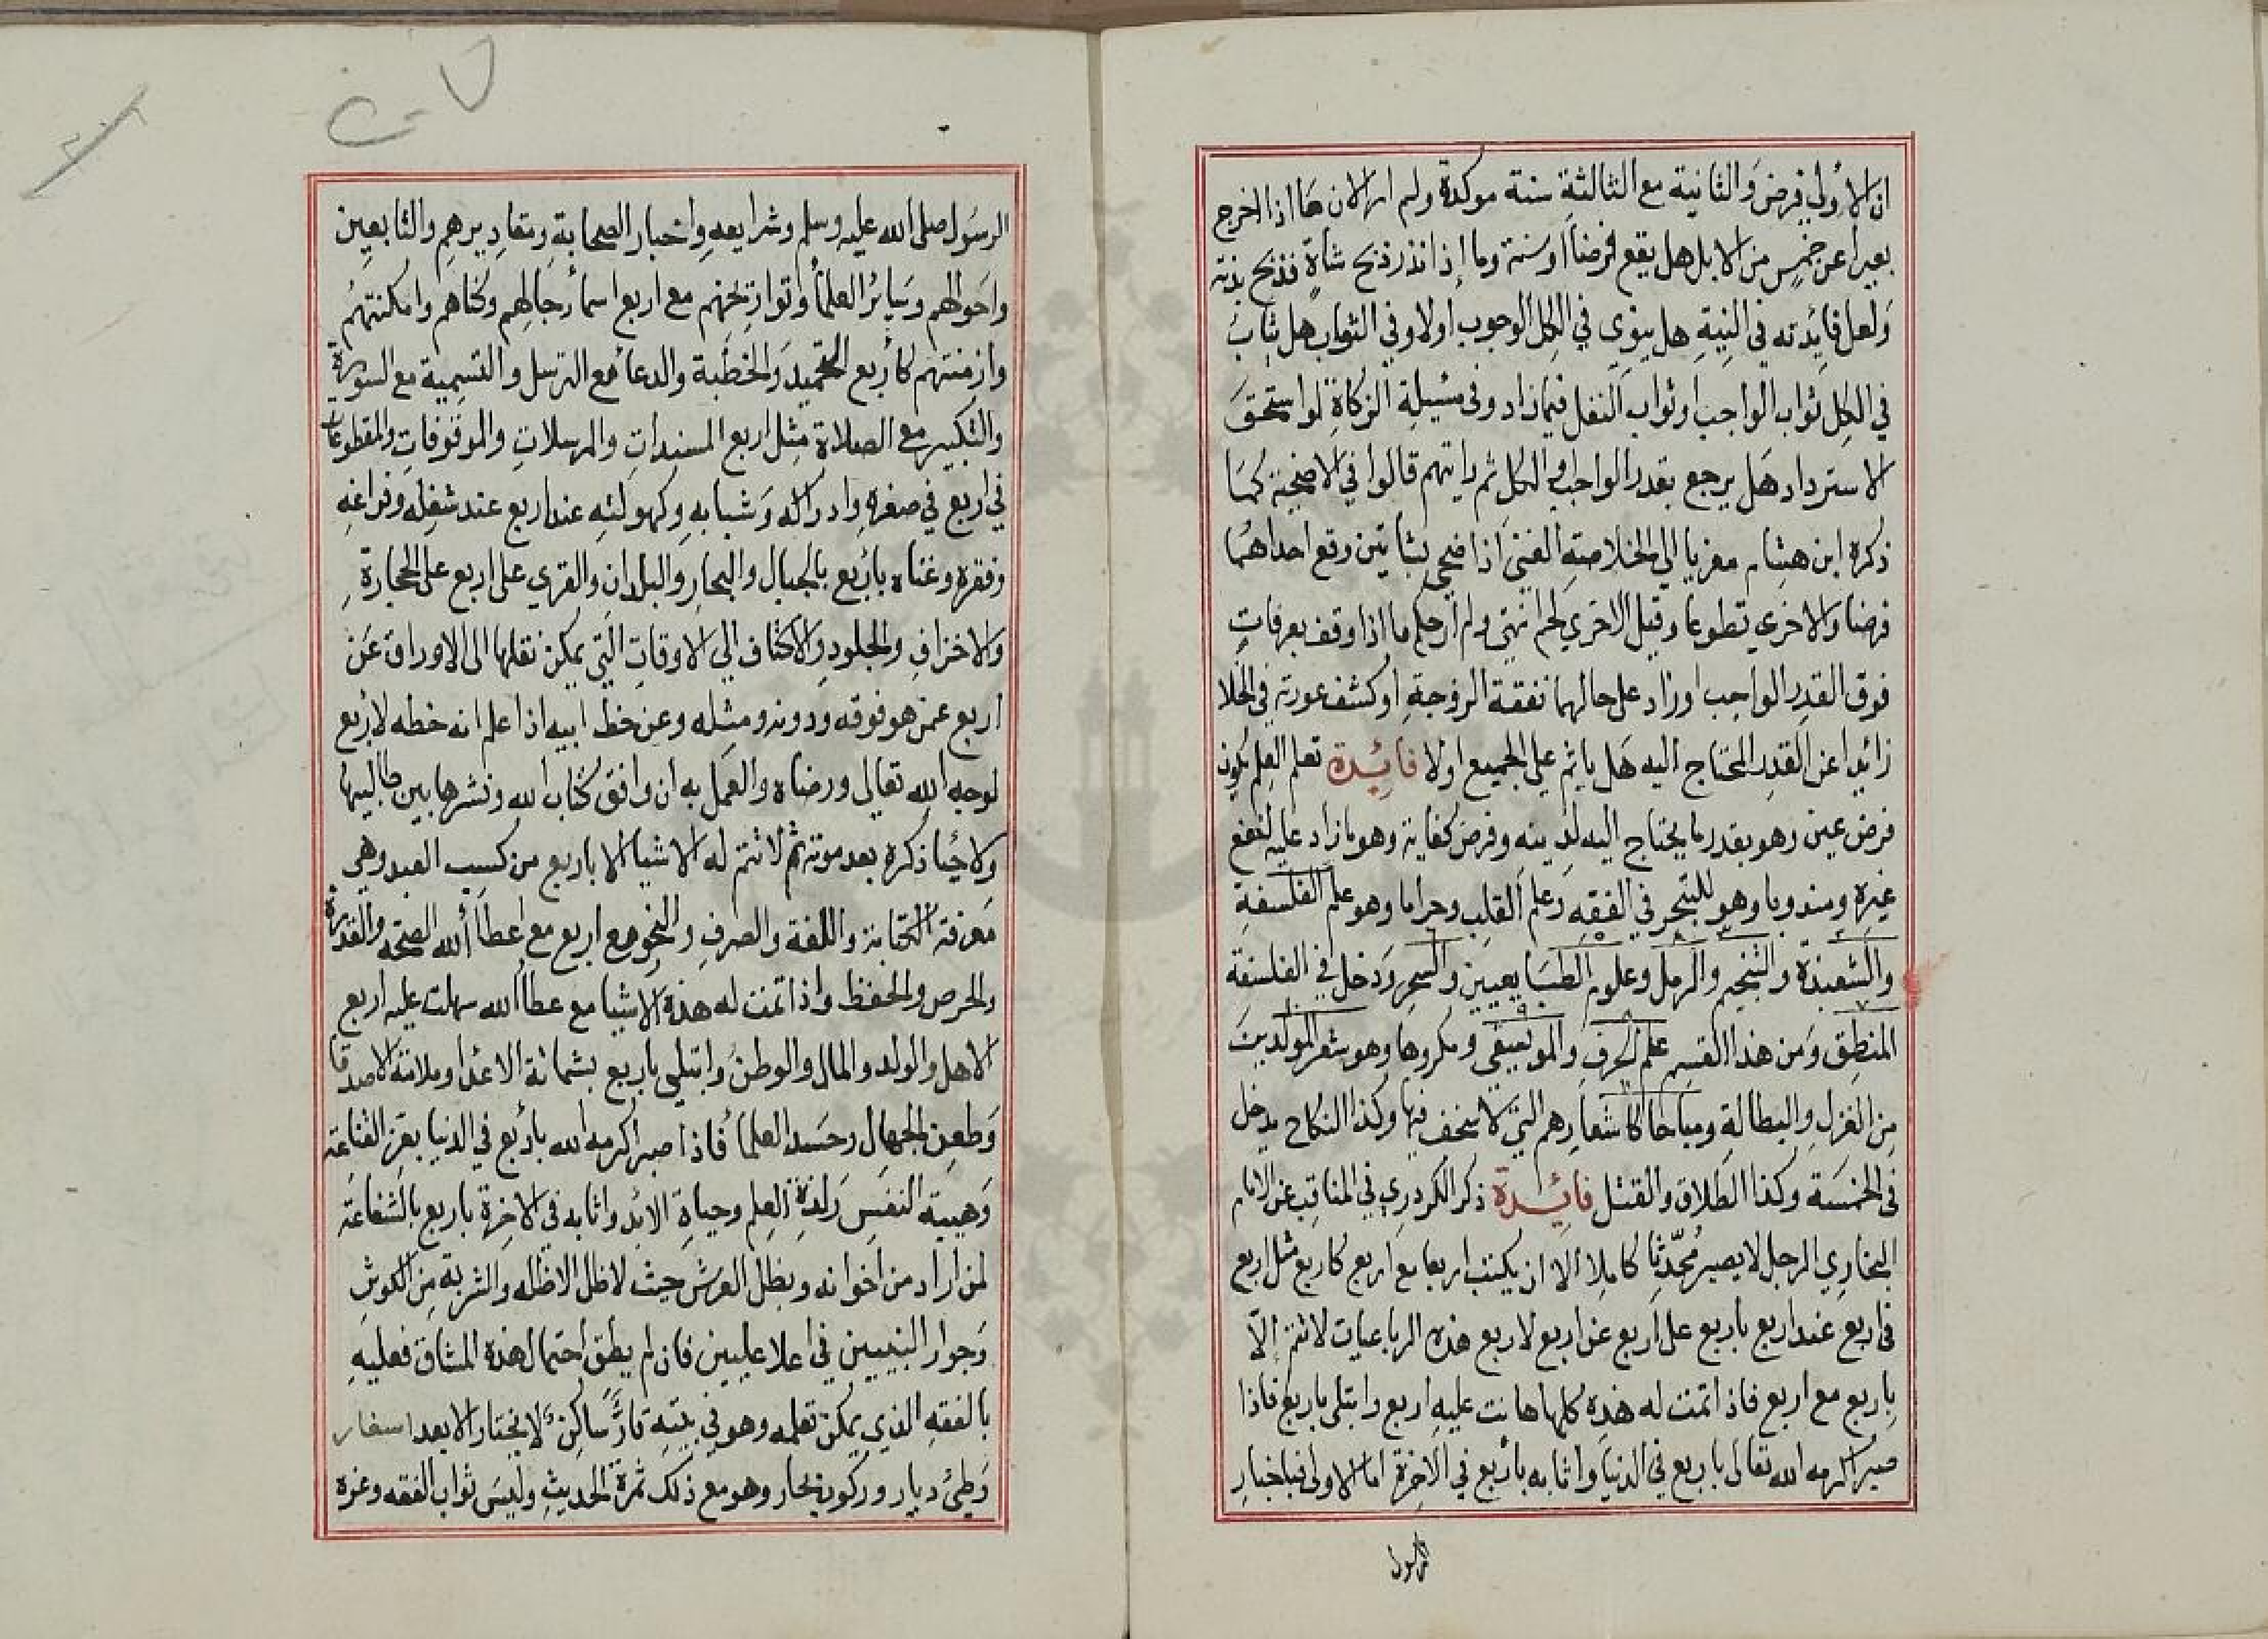 ان الاولي فرض والثانية مع الثالثة سنة موكدة ولم ار الان ها اذا اخرج
بعيرا عن خمس من الابل هل يقع فرضا او سنة وما اذا نذر ذبح شاة فذبح بدنة
ولعل فايدته في النية هل ينوي في الكل الوجوب اولا وفي الثواب هل يثاب
في الكل ثواب الواجب او ثواب النفل فيما زاد وفي مسئيلة الزكاة لو استحق
الاسترداد هل يرجع بقدر الواجب او الكل ثم رايتهم قالوا في الاضحية كما
ذكره ابن هشام معزيا الي الخلاصة الغني اذا ضحي بشاتين وقع احداهما
فرضا والاخري تطوعا وقيل الاخري لحم انتهي ولم ار حكم ما اذا وقف بعرفات
فوق القدر الواجب او زاد على حالهما نفقة الزوجة او كشف عورته في الخلا
زائدا عن القدر المحتاج اليه هل ياثم علي الجميع اولا فائيدة تعلم العلم يكون
فرض عين وهو بقدر ما يحتاج اليه لدينه وفرض كفاية وهو ما زاد عليه لنفع
غيره ومندوبا وهو للتبحر في الفقه وعلم القلب وحراما وهو علم الفلسفة
والشعبذة والتنجيم والرمل وعلوم الطبايعيين والسحر ودخل في الفلسفة
المنطق ومن هذا القسم علم الحرف والموسيقي ومكروها وهو شعر المولدين
من الغزل والبطالة ومباحا كاشعارهم التي لا سخف فيها وكذا النكاح يدخل
في الخمسة وكذا الطلاق والقتل فائيدة ذكر الكردري في المناقب عن الامام
البخاري الرجل لا يصير محدثا كاملا الا ان يكتب اربعا مع اربع كاربع مثل اربع
في اربع عند اربع باربع على اربع عن اربع لاربع هذه الرباعيات لا تتم الا
باربع مع اربع فاذا تمت له هذه كلها هانت عليه اربع وابتلى باربع فاذا
صبر اكرمه الله تعالى باربع في الدنيا واثابه باربع في الاخرة اما الاولى فباخبار
الرسول
الرسول صلى الله عليه وسلم وشرايعه واخبار الصحابة ومقاديرهم والتابعين
واحوالهم وسائر العلما وتواريخهم مع اربع اسما رجالهم وكناهم وامكنتهم
وازمنتهم كاربع التحميد والخطبة والدعا مع الترسل والتسمية مع السورة
والتكبير مع الصلاة مثل اربع المسندات والمرسلات والموقوفات والمقطوعات
في اربع في صغره وادراكه وشبابه وكهولته عند اربع عند شغله وفراغه
وفقره وغناه باربع بالجبال والبحار والبلدان والقري على اربع على الحجارة
والاخزاف والجلود والاكتاف الي الاوقات التي يمكن نقلها الى الاوراق عن
اربع عمن هو فوقه ودونه ومثله وعن خط ابيه اذا علم انه خطه لاربع
لوجه الله تعالى ورضاه والعمل به ان وافق كتاب الله ونشرها بين طالبيها
ولاحيا ذكره بعد موته ثم لا تتم له الاشيا الا باربع من كسب العبد وهي
معرفة الكتابة واللغة والصرف والنحو مع اربع مع اعطا الله الصحة والقدرة
والحرص والحفظ واذا تمت له هذه الاشيا مع عطا الله سهلت عليه اربع
الاهل والولد والمال والوطن وابتلي باربع بشماتة الاعدا وملامة الاصدقا
وطعن الجهال وحسد العلما فاذا صبر اكرمه الله باربع في الدنيا بعز القناعة
وهيبة النفس ولذة العلم وحياة الابد واثابه في الاخرة باربع بالشفاعة
لمن اراد من اخوانه وبظل العرش حيث لا ظل الا ظله والشربة من الكوثر
وجوار النبيين في اعلا عليين فان لم يطق احتمال هذه المشاق فعليه
بالفقه الذي يمكن تعلمه وهو في بيته قار ساكن لا يختار الا بعد اسفار
وطئ ديار وركوب بحار وهو مع ذلك ثمرة الحديث وليس ثواب الفقه وعزه